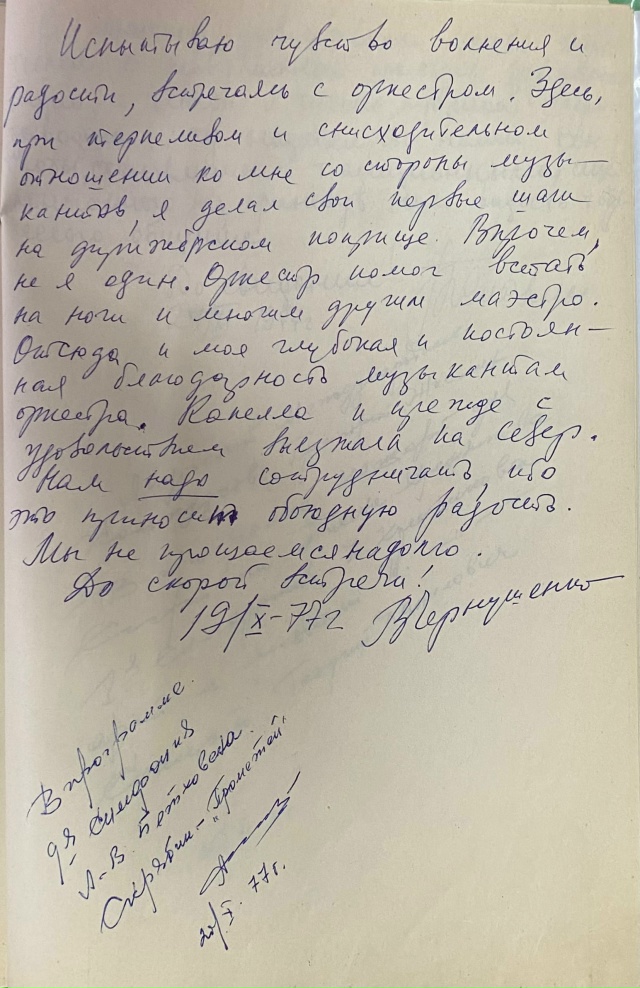 Испытываю чувство волнения и
радости, встречаясь с оркестром. Здесь,
при терпеливом и снисходительном
отношении ко мне со стороны музы-
кантов, я делал свои первые шаги
на дирижёрском поприще. Впрочем,
не я один. Оркестр помог встать
на ноги и многим другим маэстро.
Отсюда и моя глубокая и постоян-
ная благодарность музыкантам
оркестра. Капелла и прежде с
удовольствием выезжала на Север.
Нам надо сотрудничать, ибо
это приносит обоюдную радость.
Мы не прощаемся надолго.
До скорой встречи!
19/X-77г ВЧернушенко
В программе.
9я симфония
Л-В. Бетховена.
Скрябин - "Прометей"
20/X. 77г.